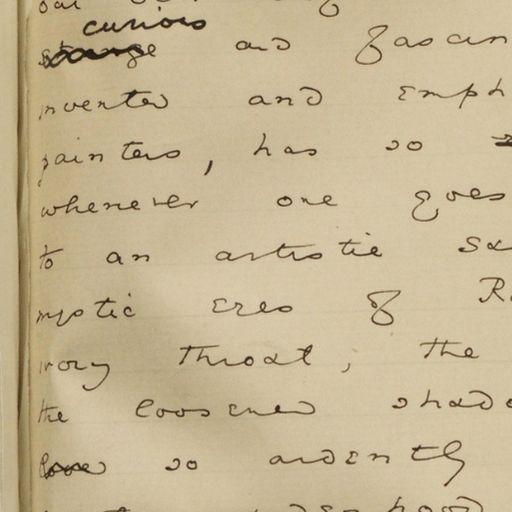 curious
strange and fascin
invented and emph
painters, has so
whenever one goes
to an artistic sa
mystic eyes of R
ivory throat, the
the loosened shado
love so ardently